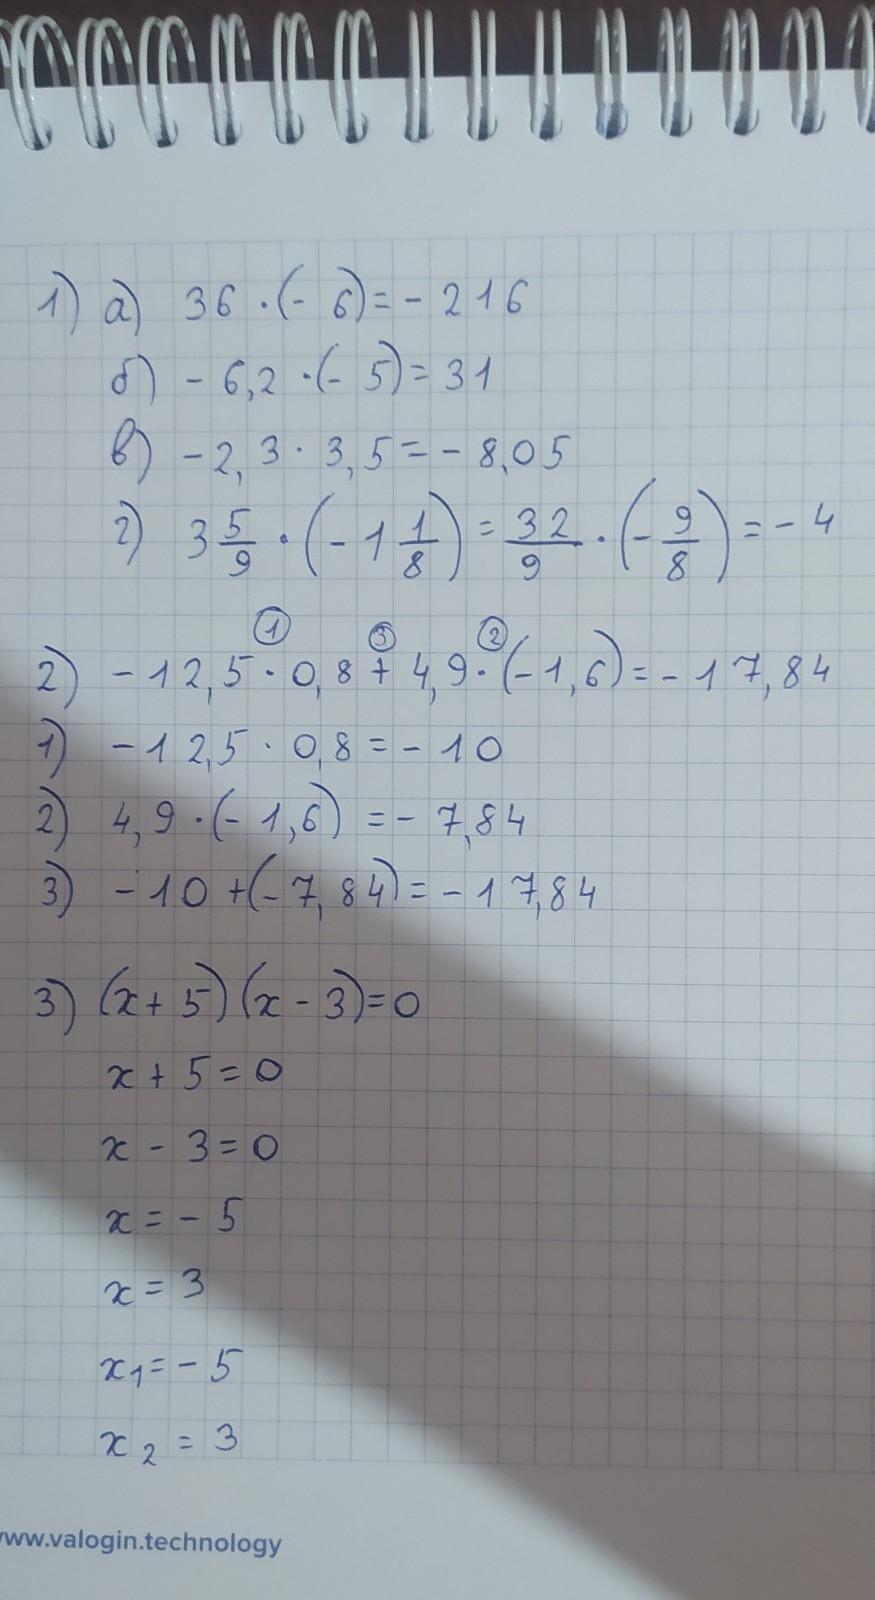 1) а) 36 · (- 6) = - 216
б) - 6,2 · (- 5) = 31
в) - 2,3 · 3,5 = - 8,05
г) 3 5/9 · (- 1 1/8) = 32/9 · (- 9/8) = - 4
① ③ ②
2) - 12,5 · 0,8 + 4,9 · (- 1,6) = - 17,84
1) - 12,5 · 0,8 = - 10
2) 4,9 · (- 1,6) = - 7,84
3) - 10 + (- 7,84) = - 17,84
3) (x + 5) (x - 3) = 0
x + 5 = 0
x - 3 = 0
x = - 5
x = 3
x₁ = - 5
x₂ = 3
www.valogin.technology